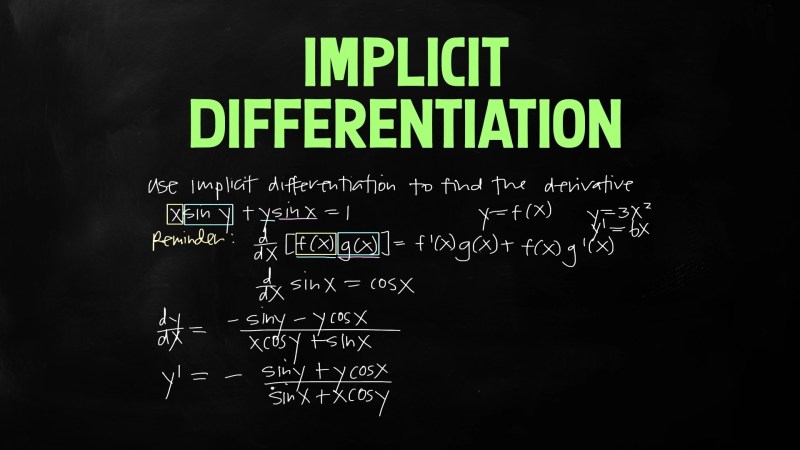 IMPLICIT
DIFFERENTIATION
use implicit differentiation to find the derivative
x sin y + y sin x = 1 y = f(x) y = 3x²
y' = 6x
Reminder: d/dx [f(x) g(x)] = f'(x) g(x) + f(x) g'(x)
d/dx sin x = cos x
dy/dx = -sin y - y cos x / x cos y + sin x
y' = - sin y + y cos x / sin x + x cos y